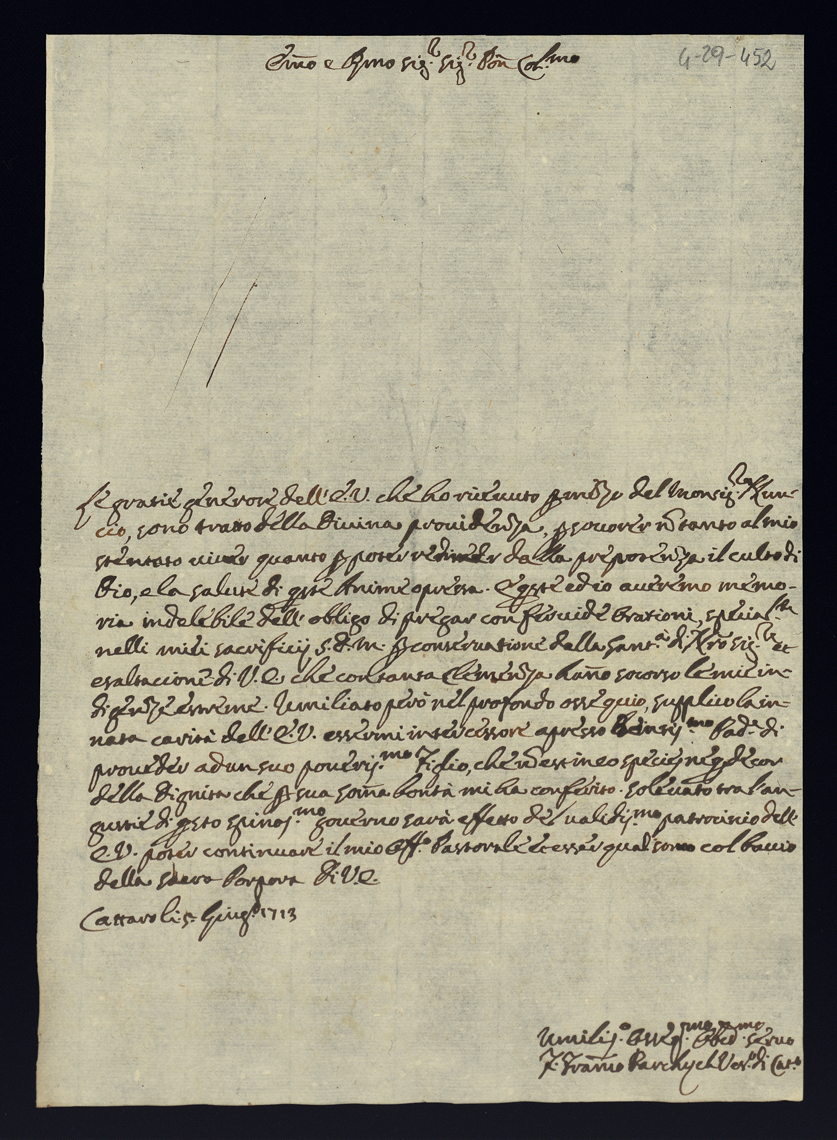 4-29-452
Em̃o e Rm̃o Sig.r Sig.r Pron̄ Col.mo
Le gratie generose dell'E.V. che ho riceuuto p mezzo del Monsig.r Nun-
cio, sono tratto della Diuina prouidenza, p socorer nō tanto al mio
stentato uiuer quanto p poter redimer dalla prepotenza il culto di
Dio, e la salute di qste Anime opresse. E qste ed io aueremo memo-
ria indelebile dell'obligo di pregar con feruide Orationi, specialm.te
nelli miei sacrificij S.D.M. p conseruatione della Sant.à di Nrō Sig.re et
esaltacione di V.E. che con tanta Clemenza hanno socorso le mie in-
digenze estreme. Umiliato però nel profondo ossequio, supplico la in-
nata carità dell'E.V. essermi intercessore apresso Beatiss.mo Pad.e di
proueder ad un suo poueriss.mo Figlio, che nō estineo specie neq decor
della Dignità che p sua som̄a bontà mi ha conferito. Soleuato tra l'an-
gustie di qsto spinos.mo gouerno sarà effetto del ualidiss.mo patrocinio dell'
E.V. poter continuare il mio Off.o Pastorale et esser qual sono col baccio
della sacra Porpora Di V.E.
Cattaro li 5 Giug.o 1713
Umiliss.o Osseq.mo Obed.mo Seruo
F. Parchich Ves.o di Cat.o